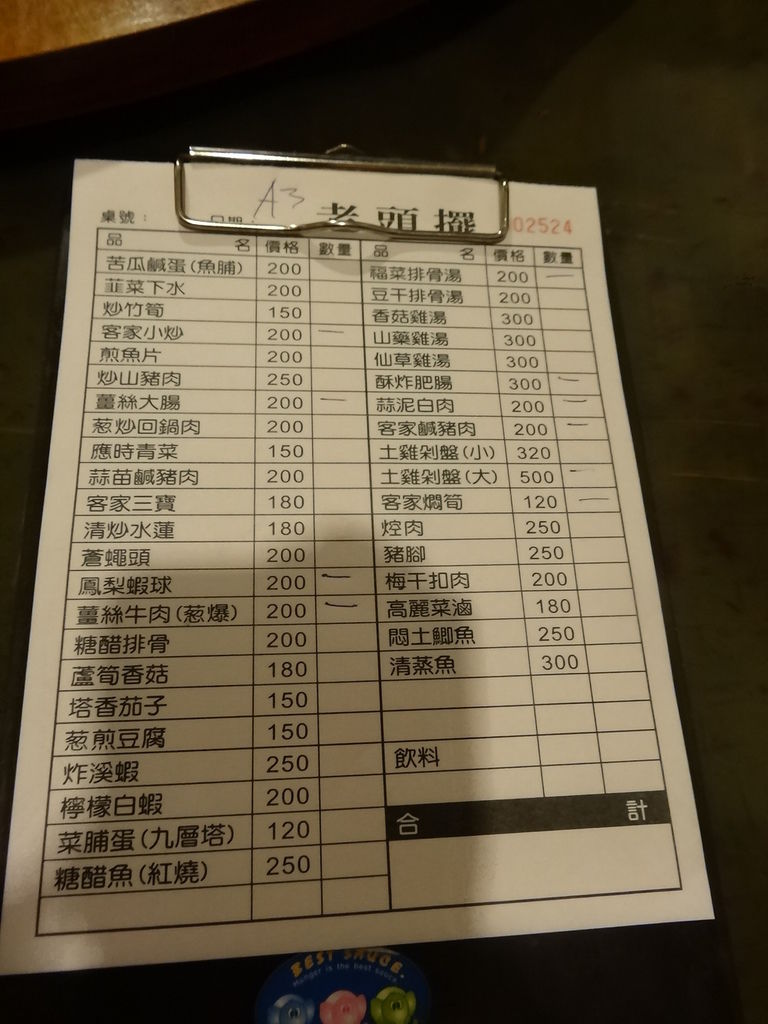 A3
桌號： 日期： 老頭擺 002524
品名 價格 數量 品名 價格 數量
苦瓜鹹蛋(魚脯) 200
韮菜下水 200
炒竹筍 150
客家小炒 200 一
煎魚片 200
炒山豬肉 250
薑絲大腸 200 一
葱炒回鍋肉 200
應時青菜 150
蒜苗鹹豬肉 200
客家三寶 180
清炒水蓮 180
蒼蠅頭 200
鳳梨蝦球 200 一
薑絲牛肉(葱爆) 200 一
糖醋排骨 200
蘆筍香菇 180
塔香茄子 150
葱煎豆腐 150
炸溪蝦 250
檸檬白蝦 200
菜脯蛋(九層塔) 120
糖醋魚(紅燒) 250
福菜排骨湯 200 一
豆干排骨湯 200
香菇雞湯 300
山藥雞湯 300
仙草雞湯 300
酥炸肥腸 300 一
蒜泥白肉 200 一
客家鹹豬肉 200 一
土雞剁盤(小) 320
土雞剁盤(大) 500 一
客家燜筍 120 一
焢肉 250
豬腳 250
梅干扣肉 200
高麗菜滷 180
悶土鯽魚 250
清蒸魚 300
飲料
合計
BEST SAUCE.
Hunger is the best sauce.